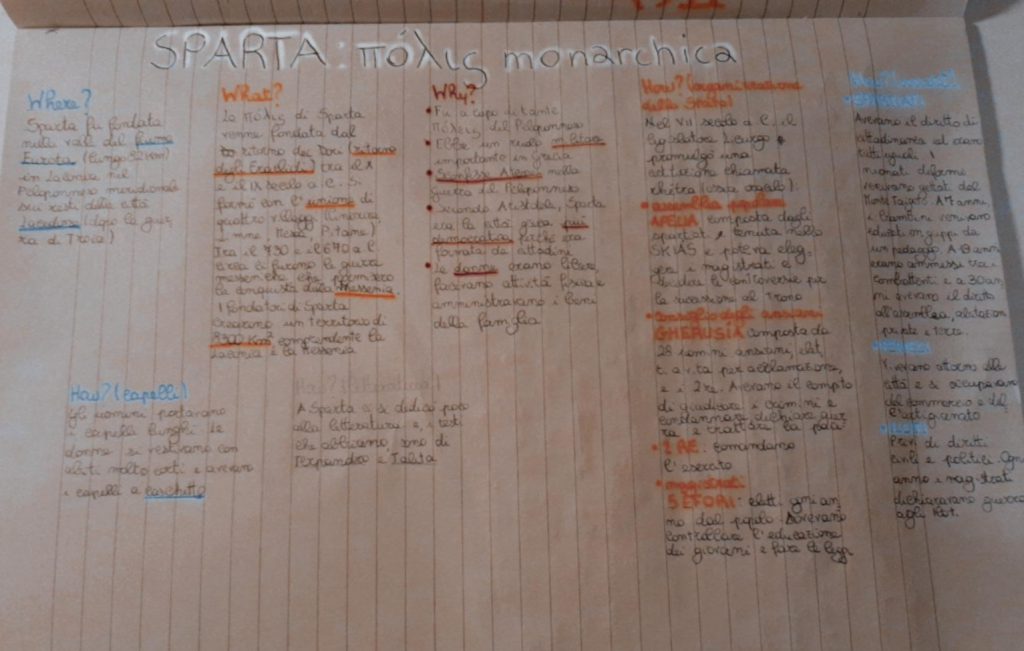 SPARTA: πόλις monarchica
Where?
Sparta fu fondata
nella valle del fiume
Eurota (lungo 82 km)
in Laconia nel
Peloponneso meridionale
sui resti della città
(dopo la guer
ra di Troia)
What?
La πόλις di Sparta
venne fondata dal
to ritorno dei Dori (ritorno
degli Eraclidi) tra il X
e il IX secolo a.C. Si
formò con l'unione di
quattro villaggi (
Limne, Mesoa, Pitane)
Tra il 730 e il 670 a.C.
circa ci furono le guerre
messeniche che permisero
la conquista della Messenia.
I fondatori di Sparta
crearono un territorio di
km² comprendente la
Laconia e la Messenia
Why?
• Fu a capo di tante
πόλεις del Peloponneso
• Ebbe un ruolo militare
importante in Grecia
• Sconfisse Atene nella
guerra del Peloponneso
• Secondo Aristotele, Sparta
era la città greca più
democratica perché era
formata da cittadini
• Le donne erano libere,
facevano attività fisica e
amministravano i beni
della famiglia
How? (organizzazione
dello Stato)
Nel VII secolo a.C. il
legislatore Licurgo
promulgò una
costituzione chiamata
rhétra (ossia oracolo):
• assemblea popolare
APELLA composta dagli
spartiati, tenuta nella
SKIAS e poteva eleg-
gere i magistrati e
decidere le controversie per
la successione al trono
• consiglio degli anziani
GHERUSIA composta da
28 uomini anziani, elet
ti a vita per acclamazione,
e i 2 re. Avevano il compito
di giudicare i crimini e
condannare, dichiarare guer
ra e trattare la pace
• 2 RE: comandano
l'esercito
• magistrati
5 EFORI: eletti ogni an
no dal popolo. Dovevano
controllare l'educazione
dei giovani e fare le leggi
• SPARTIATI
Avevano il diritto di
cittadinanza ed erano
tutti uguali. I
neonati deformi
venivano gettati dal
Monte Taigeto. A 7 anni,
i bambini venivano
educati in gruppi da
un pedagogo. A
erano ammessi tra i
combattenti e a 30 an
ni avevano il diritto
all'assemblea, abitazioni
private e terra.
• PERIECI
Vivevano attorno alla
città e si occupavano
del commercio e dell'
artigianato
• ILOTI
Privi di diritti
civili e politici. Ogni
anno i magistrati
dichiaravano guerra
agli Iloti.
How? (capelli)
Gli uomini portavano
i capelli lunghi. Le
donne si vestivano con
abiti molto corti e avevano
i capelli a caschetto
How? (letteratura)
A Sparta ci si dedicò poco
alla letteratura e i testi
che abbiamo sono di
Terpandro e Taleta